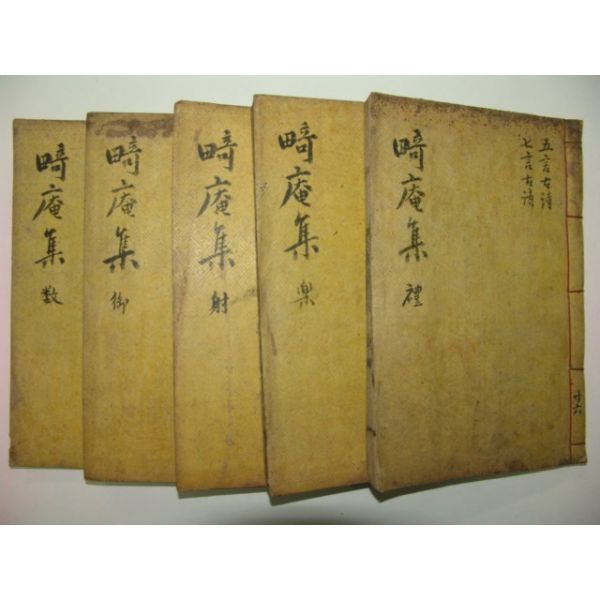 五言古詩
七言古詩
畸庵集 禮
畸庵集 楽
畸庵集 射
畸庵集 御
畸庵集 数